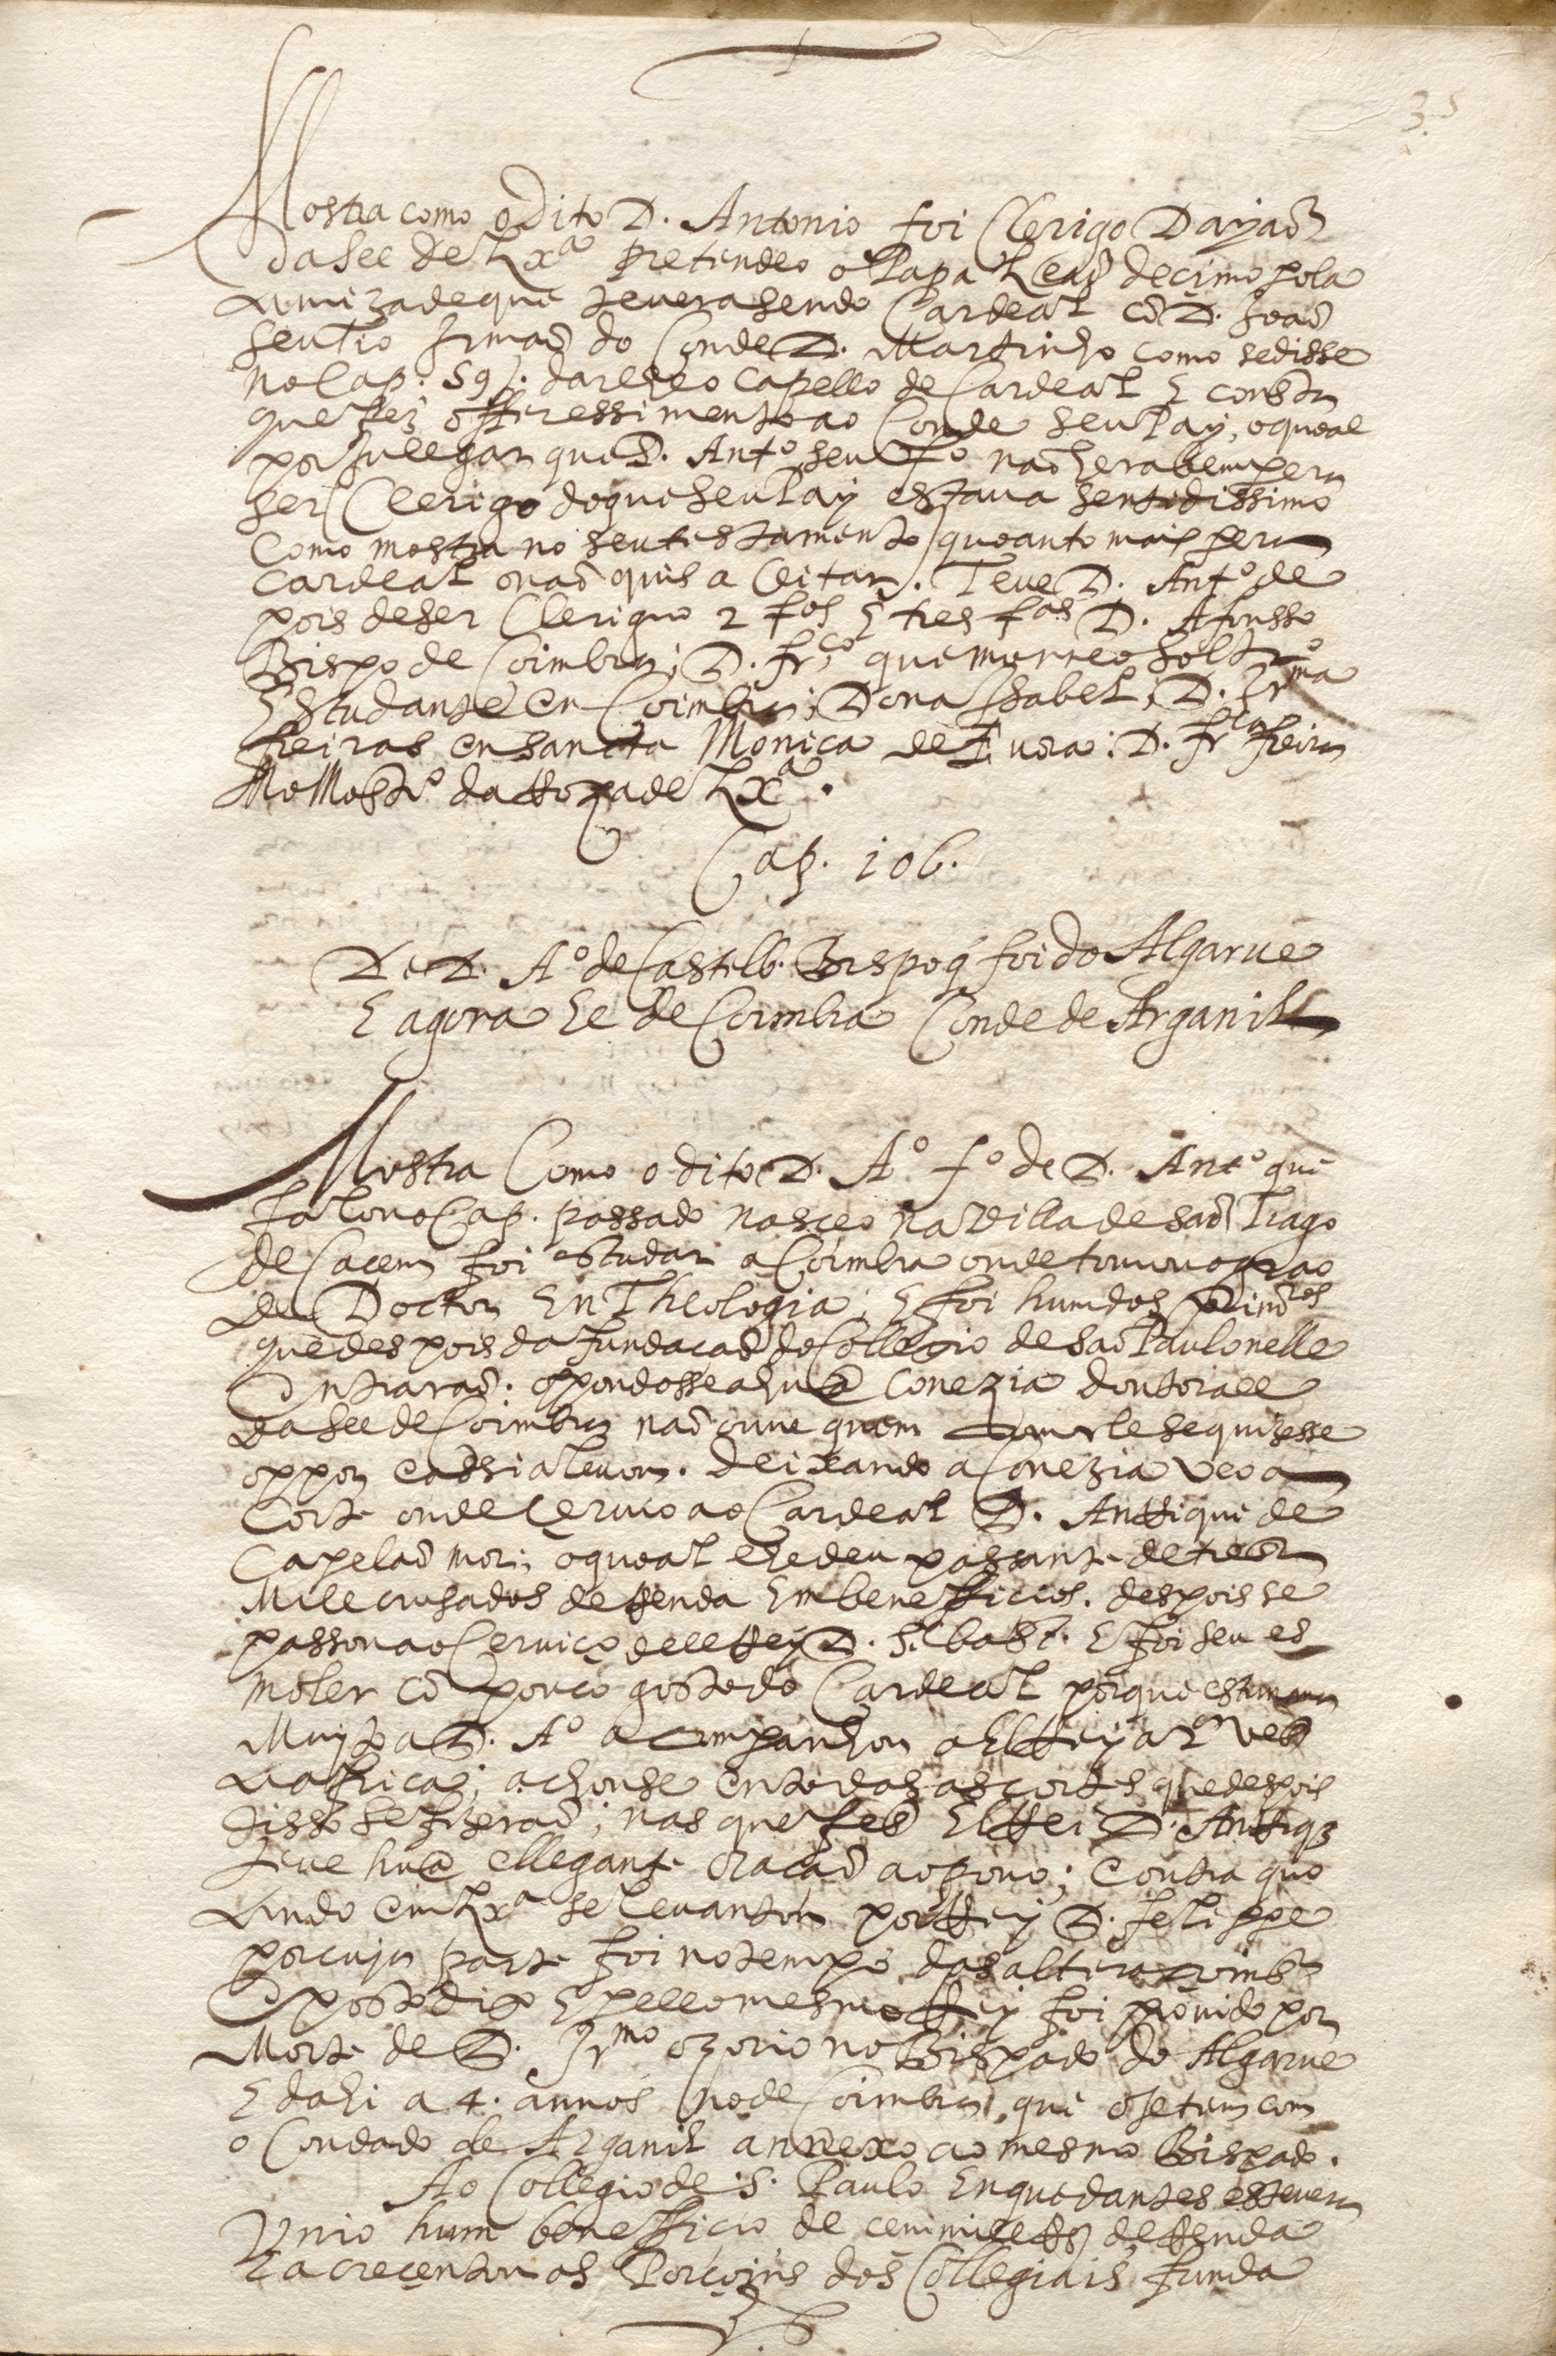 35
Mostra como o dito D. Antonio foi Clerigo Dayaõ
da See de Lxª pretendeo o Papa Leaõ decimo pola
amizade que tevera sendo Cardeal cõ D. Joaõ
seu Tio Irmaõ do Conde D. Martinho como se disse
no Cap. 59. darlhe o Capello de Cardeal E consta
que fez offeressimento ao Conde seu Pay, o qual
por julgar que D. Antº seu fº naõ hera bem pera
ser Clerigo de que seu Pay estava sentidissimo
como mostra no seu testamento quanto mais pera
Cardeal o naõ quis aceitar. Teve D. Antº de
pois de ser Clerigo 2 fos E tres fas D. Afonsso
Bispo de Coimbra; D. frco que morreo soltrº
Estudante en Coimbra; Dona Isabel, D. Irma
freiras en sancta Monica de Evora: D. frca freira
No Mostrº da Roza de Lxª.
Cap. 106.
De D. Aº de Castelb. Bispo q̃ foi do Algarve
E agora he de Coimbra Conde de Arganil
Mostra Como o dito D. Aº fº de D. Antº que
falou o Cap. passado nasceo na Villa de saõ Tiago
de Cacem foi estudar a Coimbra onde tomou o grao
de Doctor En Theologia; E foi hum dos primros
que despois da fundaçaõ do Collegio de saõ Paulo nelle
Entraraõ. oppondosse a hũa Conezia doutorall
da See de Coimbra naõ ouve quem com elle se quizesse
oppor e assi a levou. deixando a Conezia veo a
Corte onde servio ao Cardeal D. Anrique de
Capelaõ mor; o qual lhe deu passante de tres
Mil cruzados de Renda Em benefficios. despois se
passou ao serviço delRey D. Sebast. E foi seu es
moler cõ pouco gosto do Cardeal porque estimava
Muyto a D. Aº acompanhou a ElRey a 1ª ves
a Africa; achouse en todas as cortes que despois
disso se fizeraõ; nas que fes ElRei D. Anriq3
teve hũa ellegante oraçaõ ao povo; Contra quo
ando em Lxª se levantou por Rey D. felippe
por cuja parte foi no tempo das alteraçoins
Exposto dix E pello mesmo Rey foi provido por
Morte de D. Irmo ozorio no Bispado do Algarve
E dahi a 4. annos no de Coimbra, que oje tem com
o Condado de Arganil annexo ao mesmo Bispado.
Ao Collegio de S. Paulo En que dantes estevera
Vnio hum benefficio de cem mil rs de Renda
E acrecentou as Porçoins dos Collegiais funda